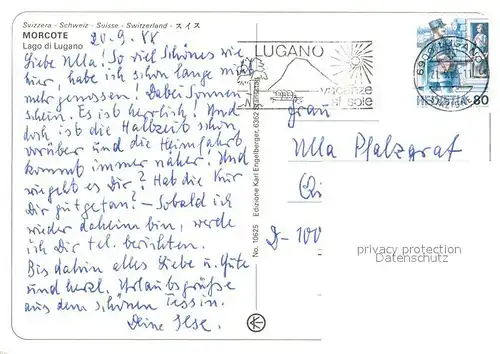 Svizzera - Schweiz - Suisse - Switzerland - スイス
MORCOTE
Lago di Lugano
20.9.88
Liebe Ulla! So viel Schönes wie
hier, habe ich schon lange nicht
mehr genossen! Dabei Sonnen
schein. Es ist herrlich! Und
doch ist die Halbzeit schon
vorüber und die Heimfahrt
kommt immer näher! Und
wie geht es Dir? Hat die Kur
Dir gut getan? - Sobald ich
wieder daheim bin, werde
ich Dir tel. berichten.
Bis dahin alles Liebe u. Gute
und herzl. Urlaubsgrüße
aus dem schönen Tessin.
Deine Ilse.
No. 10625 Edizione Karl Engelberger, 6362 Stansstad
LUGANO
vacanze
al sole
6900 LUGANO
HELVETIA 80
Frau
Ulla Pfalzgraf
D-100
privacy protection
Datenschutz